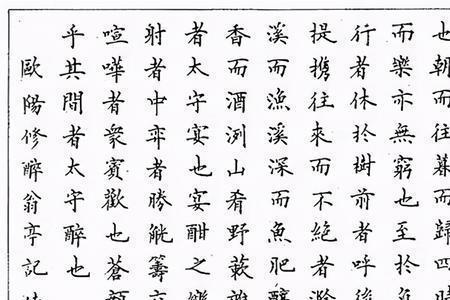 也朝而往暮而歸四時
而樂亦無窮也至於負
行者休於樹前者呼後
提携往來而不絕者滁
溪而漁溪深而魚肥釀
香而酒洌山肴野蔌雜
者太守宴也宴酣之樂
射者中弈者勝觥籌交
喧嘩者衆賓歡也蒼顏
乎其間者太守醉也
歐陽修醉翁亭記